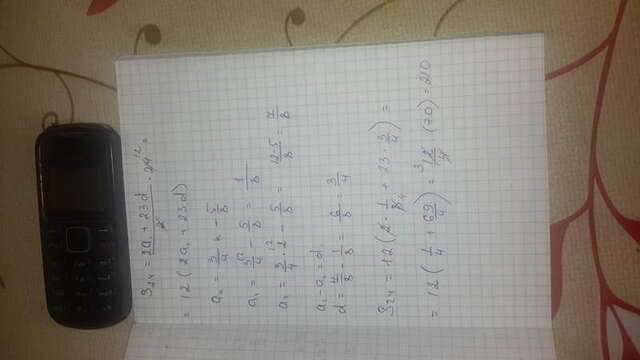 S₂₄ = (2a₁ + 23d)/2 · 24¹² =
= 12 (2a₁ + 23d)
aₙ = 3/4 n − 5/8
a₁ = 3/4 − 5/8 = 1/8
a₂ = 3/4 · 2 − 5/8 = (12−5)/8 = 7/8
a₂ − a₁ = d
d = 7/8 − 1/8 = 6/8 = 3/4
S₂₄ = 12 (2 · 1/8 + 23 · 3/4) =
= 12 (1/4 + 69/4) = 12/4 · (70) = 210